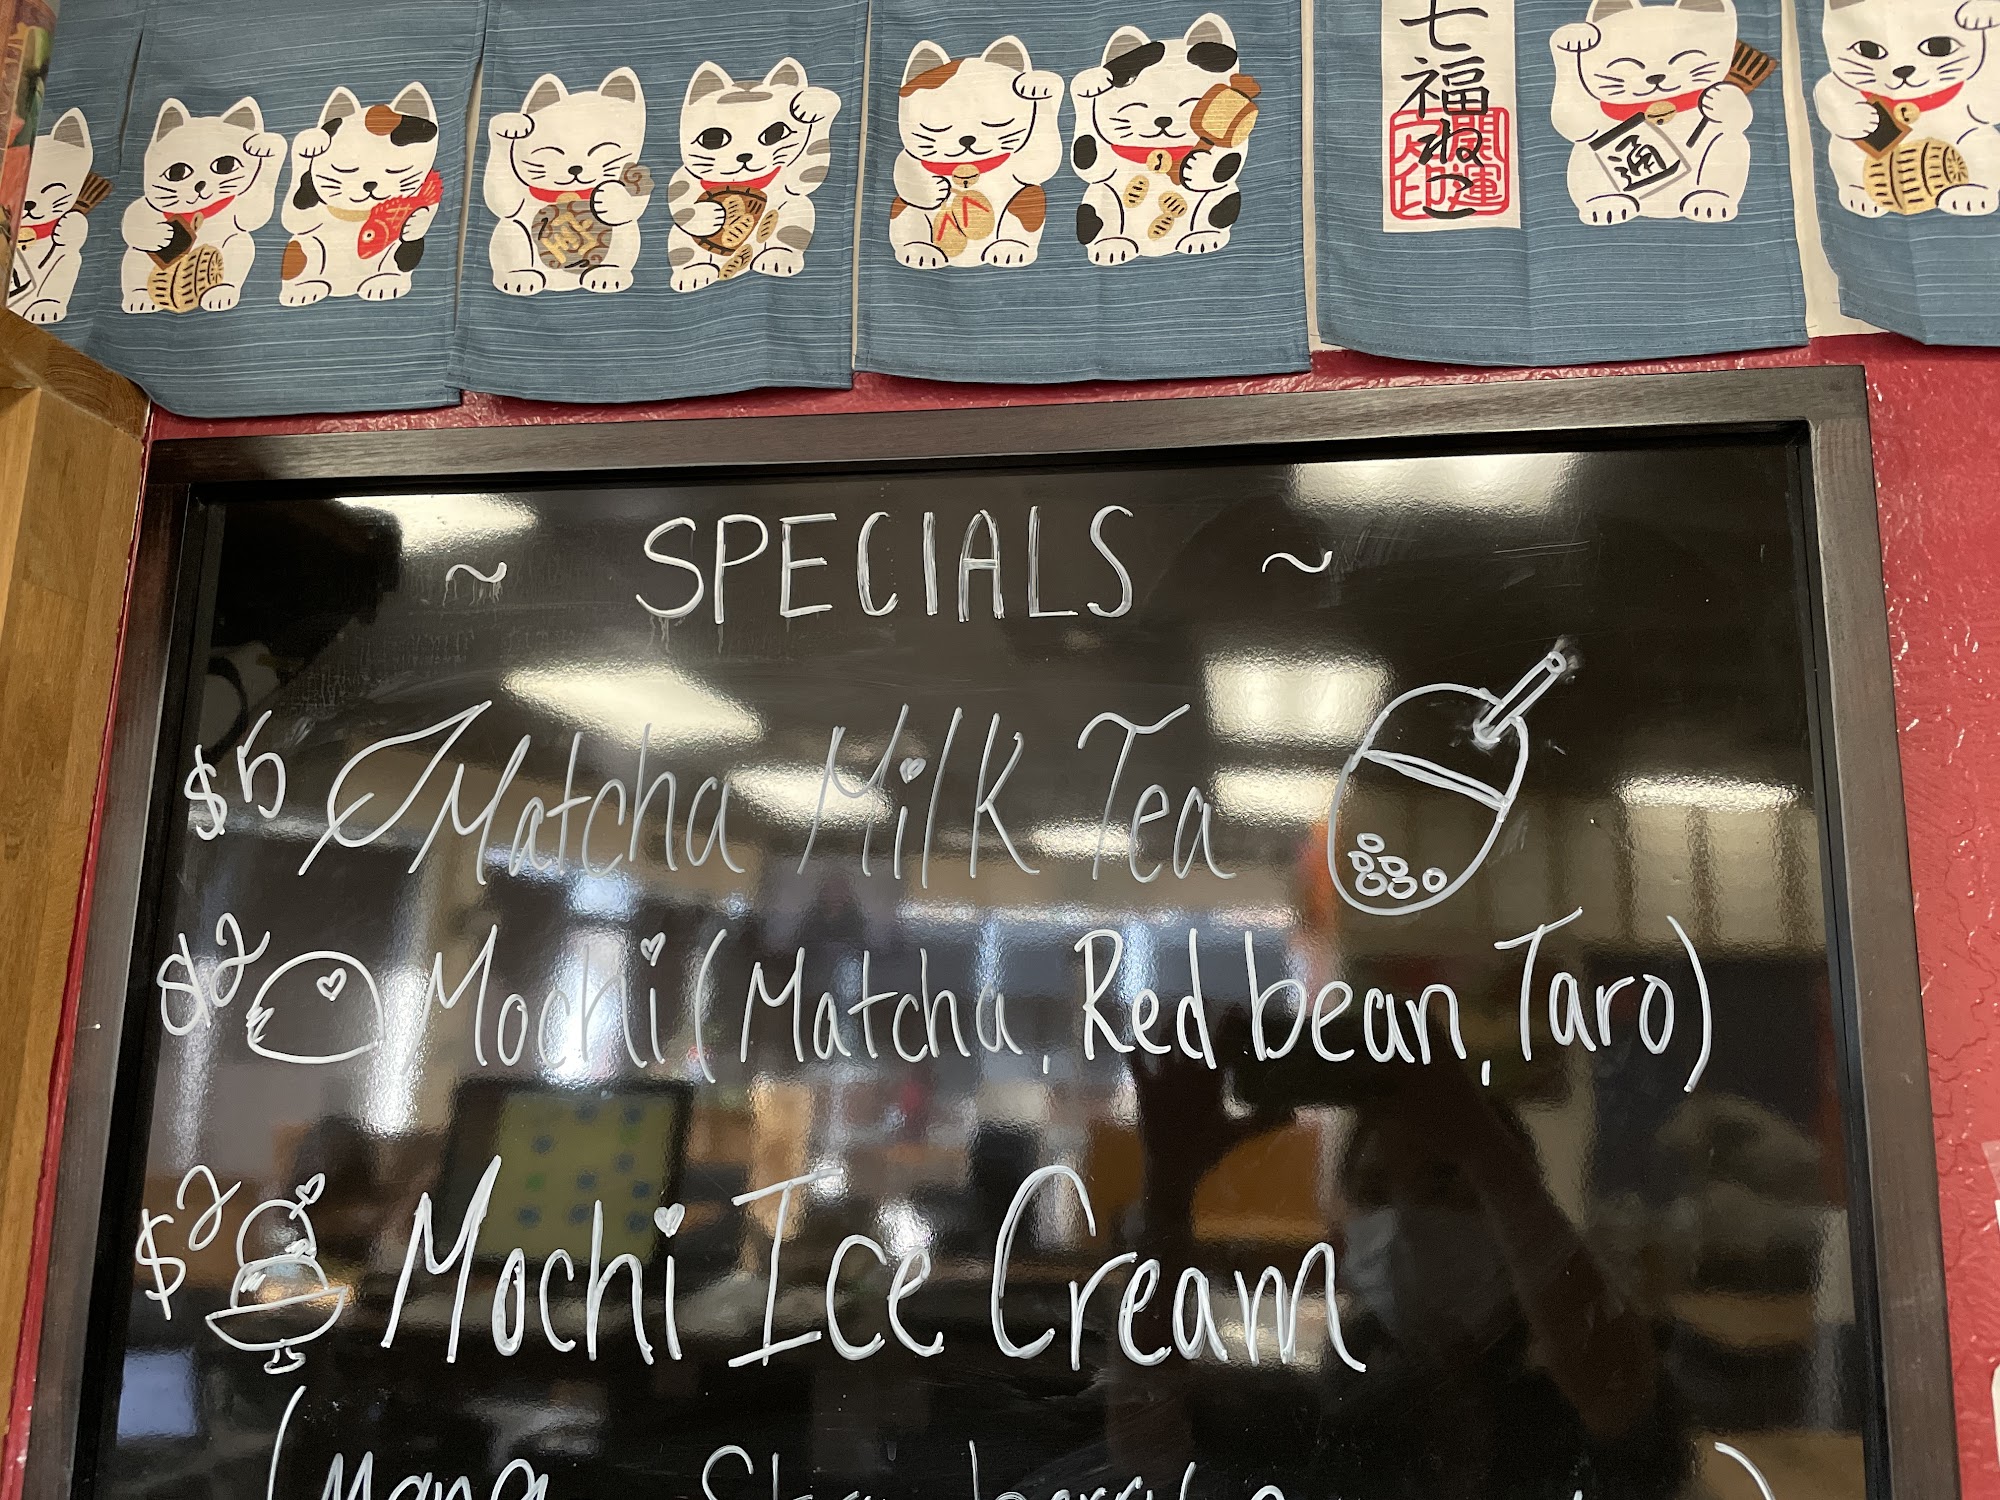 七福ねこ
開運
招福
通
~ SPECIALS ~
$5 Matcha Milk Tea
$2 Mochi (Matcha, Red bean, Taro)
$2 Mochi Ice Cream